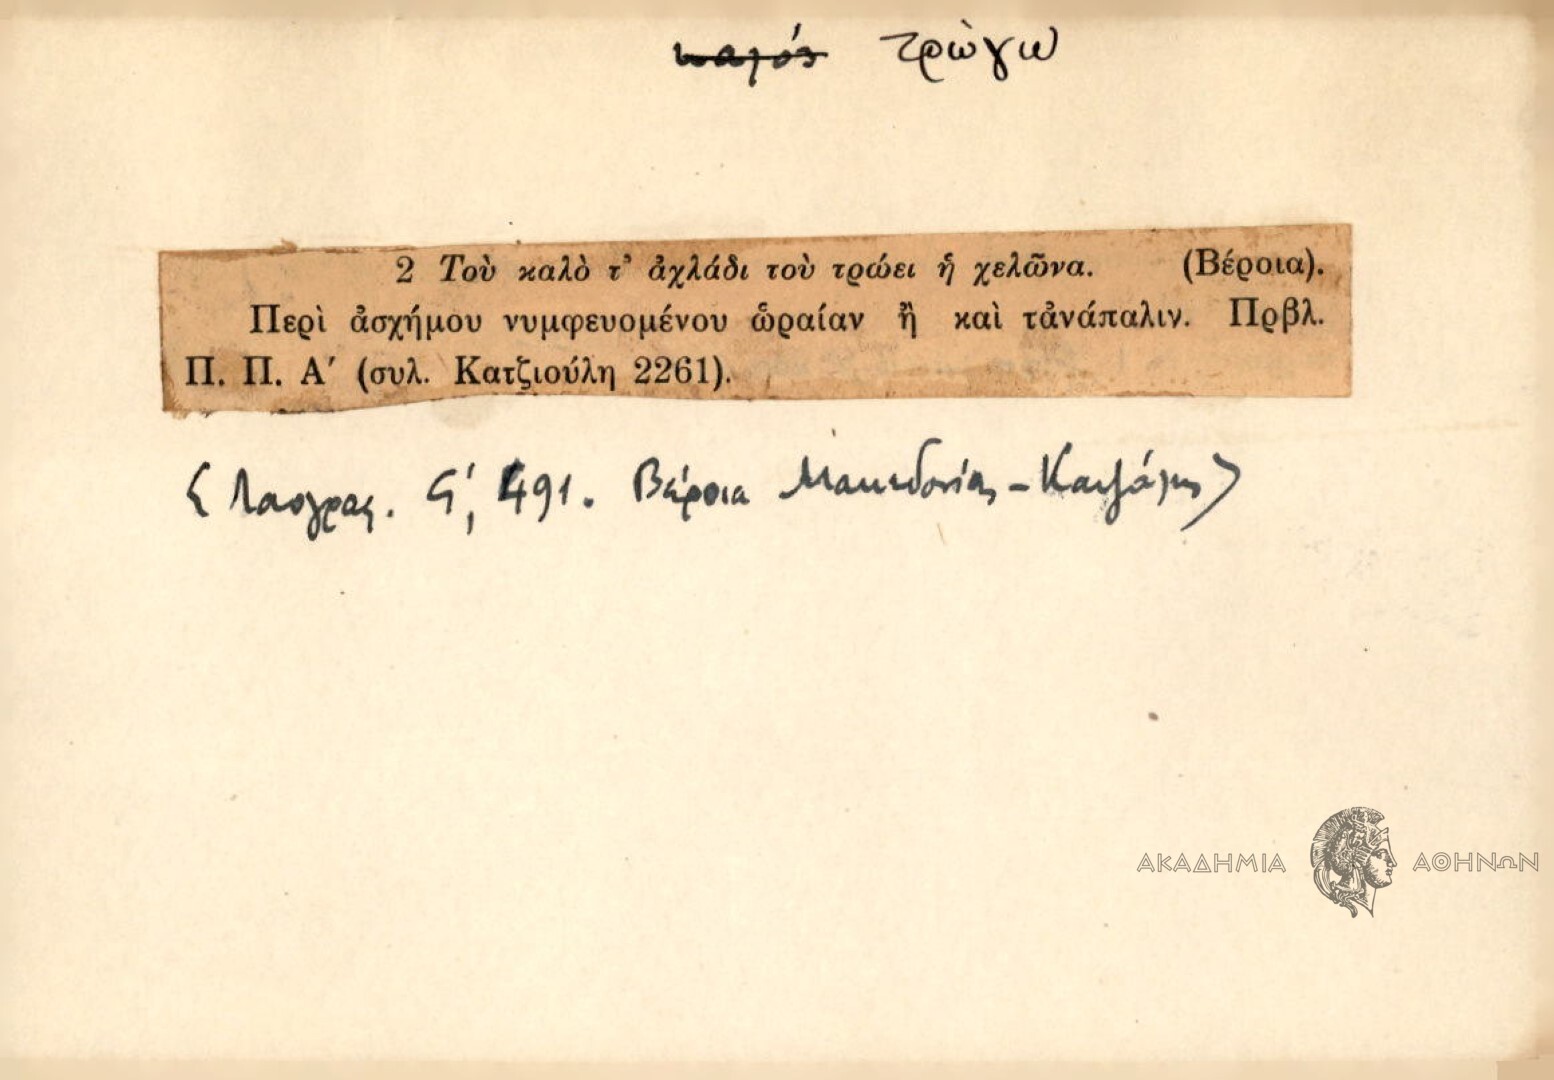 καλός τρώγω
2 Τοὺ καλὸ τ’ ἀχλάδι τοὺ τρώει ἡ χελῶνα. (Βέροια).
Περὶ ἀσχήμου νυμφευομένου ὡραίαν ἢ καὶ τἀνάπαλιν. Πρβλ.
Π. Π. Α′ (συλ. Κατζιούλη 2261).
Λαογρας. Ϛ′, 491. Βέροια Μακεδονίας -
ΑΚΑΔΗΜΙΑ ΑΘΗΝΩΝ